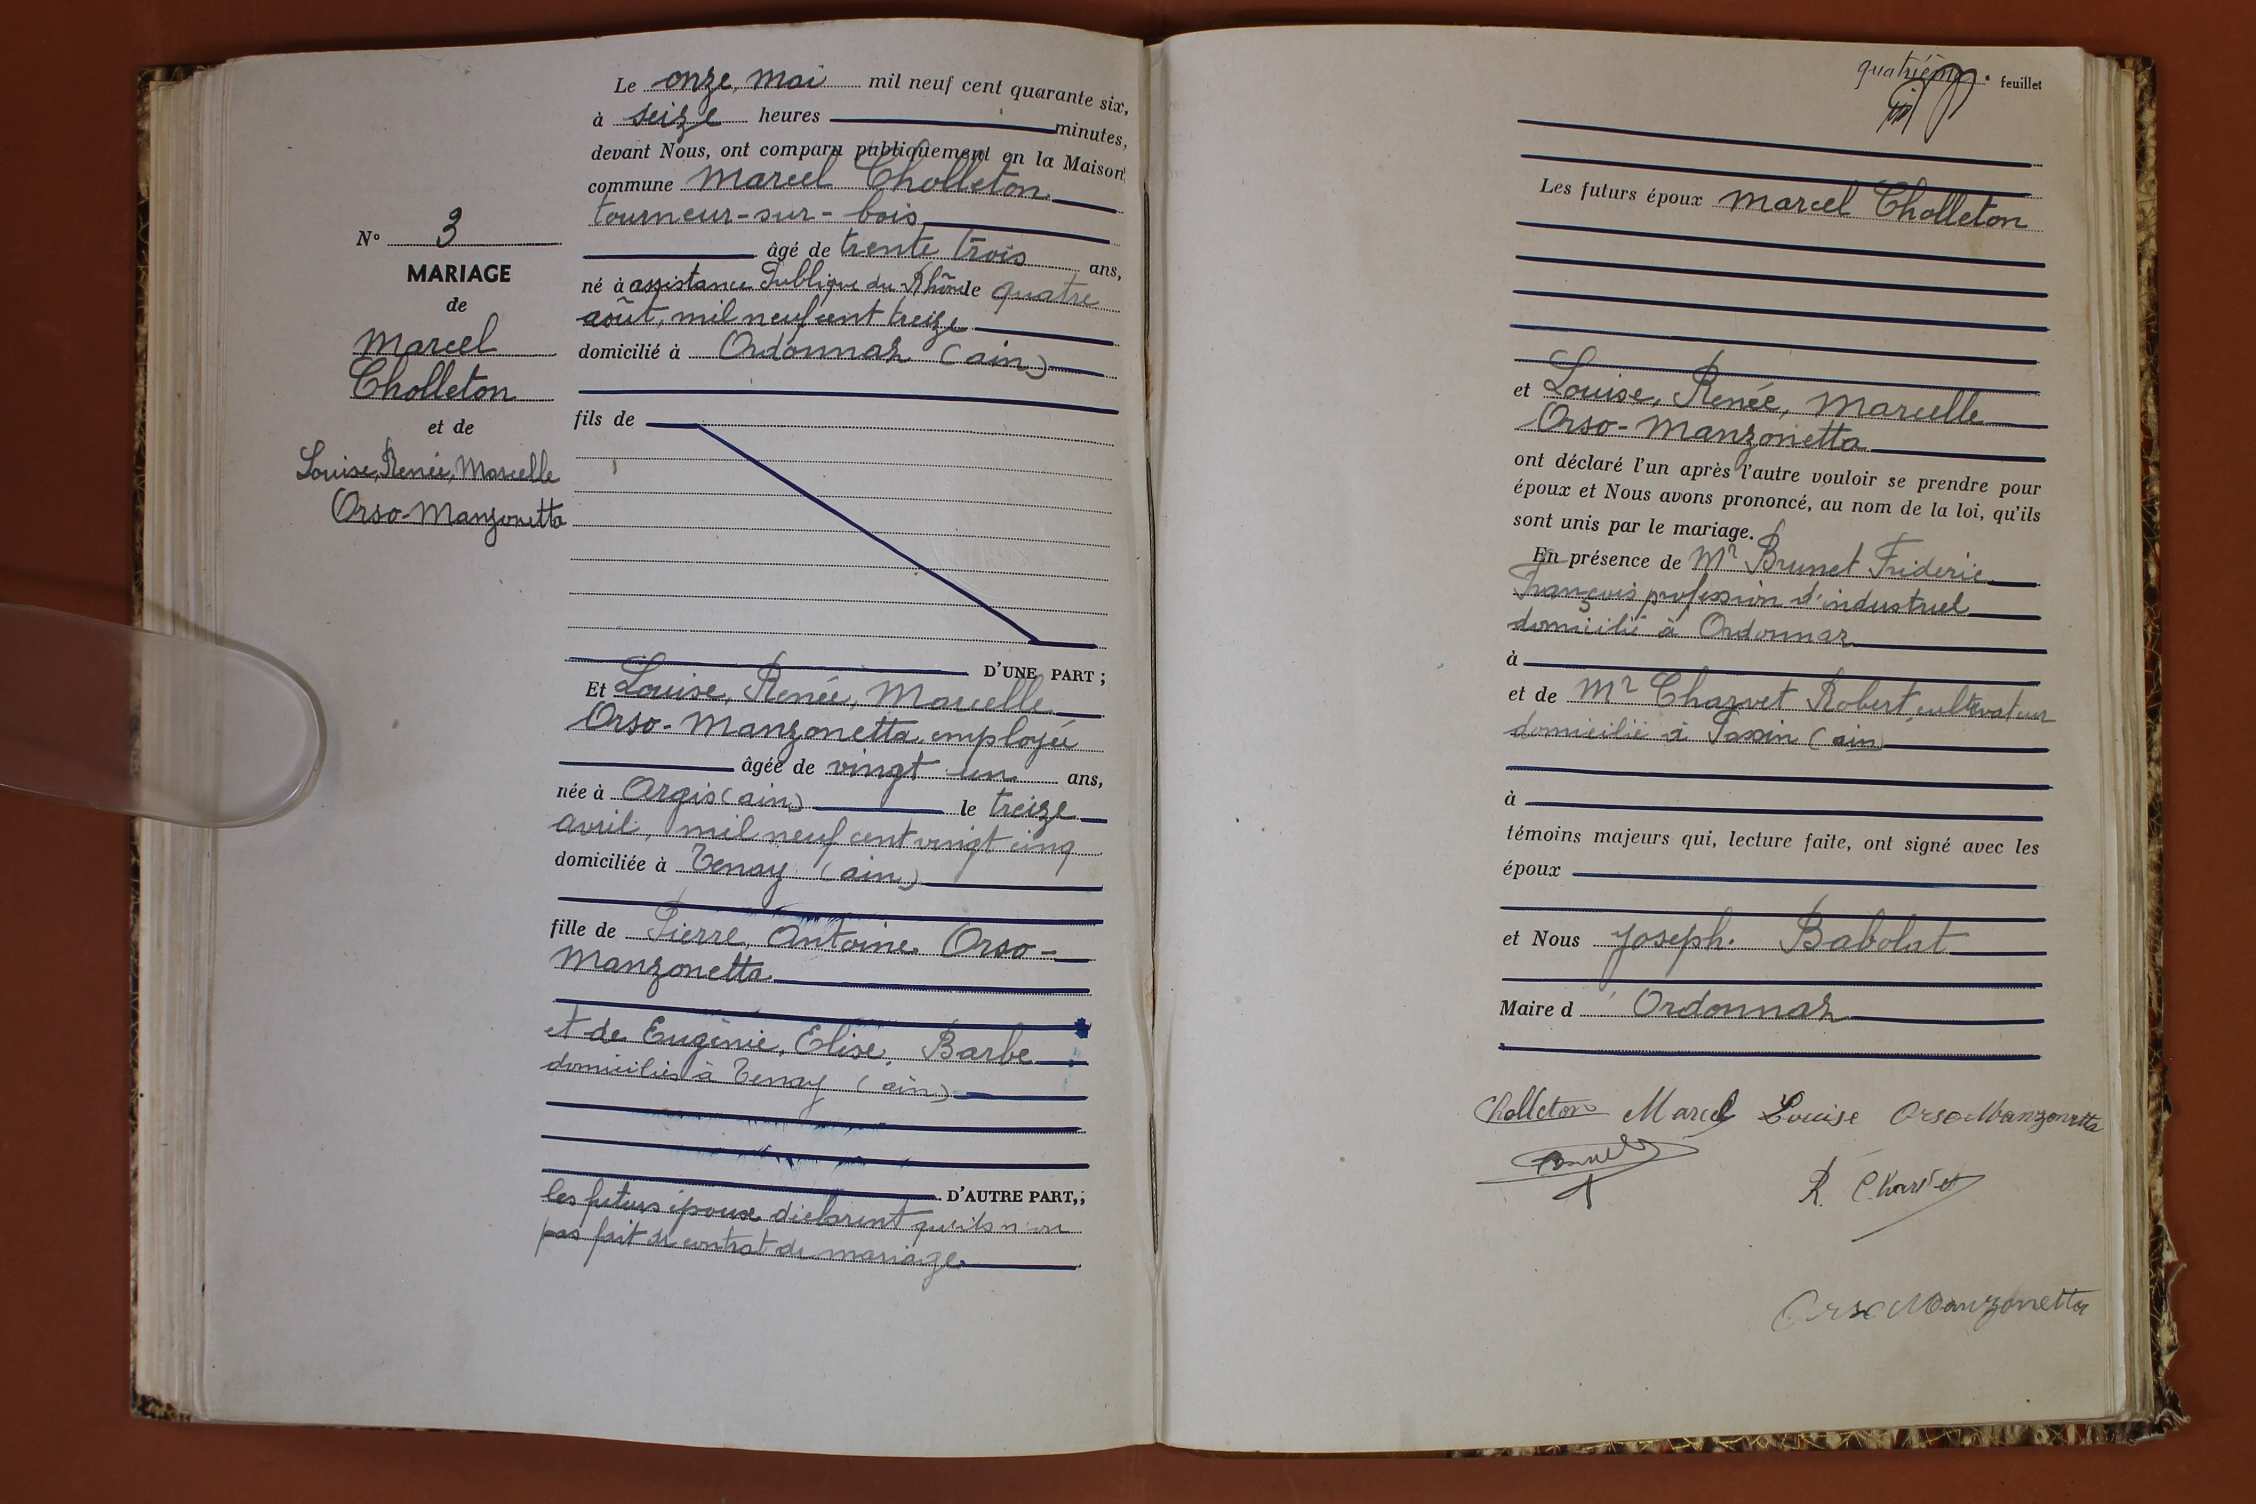 Le onze, mai mil neuf cent quarante six,
à seize heures minutes,
devant Nous, ont comparu publiquement en la Maison
commune Marcel Cholleton
tourneur-sur-bois
âgé de trente trois ans,
né à assistance Publique du Rhône le quatre
août, mil neuf cent treize
domicilié à Ordonnaz (ain)
fils de
D'UNE PART ;
N° 3
MARIAGE
de
Marcel
Cholleton
et de
Louise, Renée, Marcelle
Orso-Manzonetta
Et Louise, Renée, Marcelle
Orso-Manzonetta, employée
âgée de vingt un ans,
née à Argis (ain) le treize
avril, mil neuf cent vingt cinq
domiciliée à Tenay (ain)
fille de Pierre, Antoine. Orso-
Manzonetta
et de Eugénie, Elise, Barbe
domiciliés à Tenay (ain)
D'AUTRE PART,;
les futurs époux déclarent qu'ils n'on
pas fait de contrat de mariage.
quatrième feuillet
Les futurs époux Marcel Cholleton
et Louise, Renée, Marcelle
Orso-Manzonetta
ont déclaré l'un après l'autre vouloir se prendre pour
époux et Nous avons prononcé, au nom de la loi, qu'ils
sont unis par le mariage.
En présence de Mr Brunet Frideric
François profession d'industriel
domicilié à Ordonnaz
à
et de Mr Charvet Robert, cultivateur
domicilié à (ain)
à
témoins majeurs qui, lecture faite, ont signé avec les
époux
et Nous Joseph. Babolat
Maire d Ordonnaz
Cholleton Marcel Louise Orso Manzonetta
R. Charvet
Orso Manzonetta